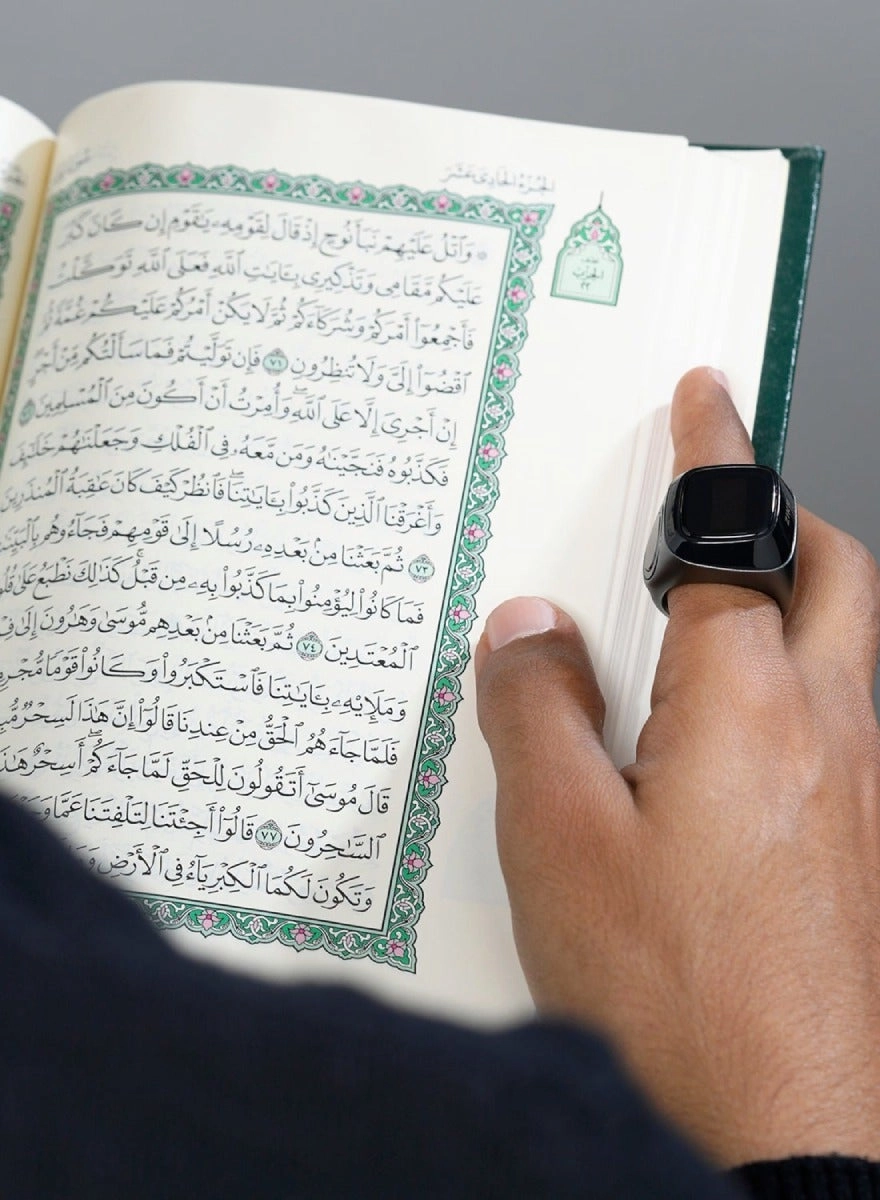 الجزء الحادي عشر
۞ وَٱتْلُ عَلَيْهِمْ نَبَأَ نُوحٍ إِذْ قَالَ لِقَوْمِهِۦ يَٰقَوْمِ إِن كَانَ كَبُرَ
عَلَيْكُم مَّقَامِى وَتَذْكِيرِى بِـَٔايَٰتِ ٱللَّهِ فَعَلَى ٱللَّهِ تَوَكَّلْتُ
فَأَجْمِعُوٓا۟ أَمْرَكُمْ وَشُرَكَآءَكُمْ ثُمَّ لَا يَكُنْ أَمْرُكُمْ عَلَيْكُمْ غُمَّةً ثُمَّ
ٱقْضُوٓا۟ إِلَىَّ وَلَا تُنظِرُونِ ٧١ فَإِن تَوَلَّيْتُمْ فَمَا سَأَلْتُكُم مِّنْ أَجْرٍ
إِنْ أَجْرِىَ إِلَّا عَلَى ٱللَّهِ ۖ وَأُمِرْتُ أَنْ أَكُونَ مِنَ ٱلْمُسْلِمِينَ
فَكَذَّبُوهُ فَنَجَّيْنَٰهُ وَمَن مَّعَهُۥ فِى ٱلْفُلْكِ وَجَعَلْنَٰهُمْ خَلَٰٓئِفَ
وَأَغْرَقْنَا ٱلَّذِينَ كَذَّبُوا۟ بِـَٔايَٰتِنَا ۖ فَٱنظُرْ كَيْفَ كَانَ عَٰقِبَةُ ٱلْمُنذَرِينَ
٧٣ ثُمَّ بَعَثْنَا مِنۢ بَعْدِهِۦ رُسُلًا إِلَىٰ قَوْمِهِمْ فَجَآءُوهُم بِٱلْبَيِّنَٰتِ
فَمَا كَانُوا۟ لِيُؤْمِنُوا۟ بِمَا كَذَّبُوا۟ بِهِۦ مِن قَبْلُ ۚ كَذَٰلِكَ نَطْبَعُ عَلَىٰ
ٱلْمُعْتَدِينَ ٧٤ ثُمَّ بَعَثْنَا مِنۢ بَعْدِهِم مُّوسَىٰ وَهَٰرُونَ إِلَىٰ
وَمَلَإِي۟هِۦ بِـَٔايَٰتِنَا فَٱسْتَكْبَرُوا۟ وَكَانُوا۟ قَوْمًا
فَلَمَّا جَآءَهُمُ ٱلْحَقُّ مِنْ عِندِنَا قَالُوٓا۟ إِنَّ هَٰذَا لَسِحْرٌ
قَالَ مُوسَىٰٓ أَتَقُولُونَ لِلْحَقِّ لَمَّا جَآءَكُمْ ۖ أَسِحْرٌ هَٰذَا
ٱلسَّٰحِرُونَ ٧٧ قَالُوٓا۟ أَجِئْتَنَا لِتَلْفِتَنَا عَمَّا
وَتَكُونَ لَكُمَا ٱلْكِبْرِيَآءُ فِى ٱلْأَرْضِ
الحزب
٢٢